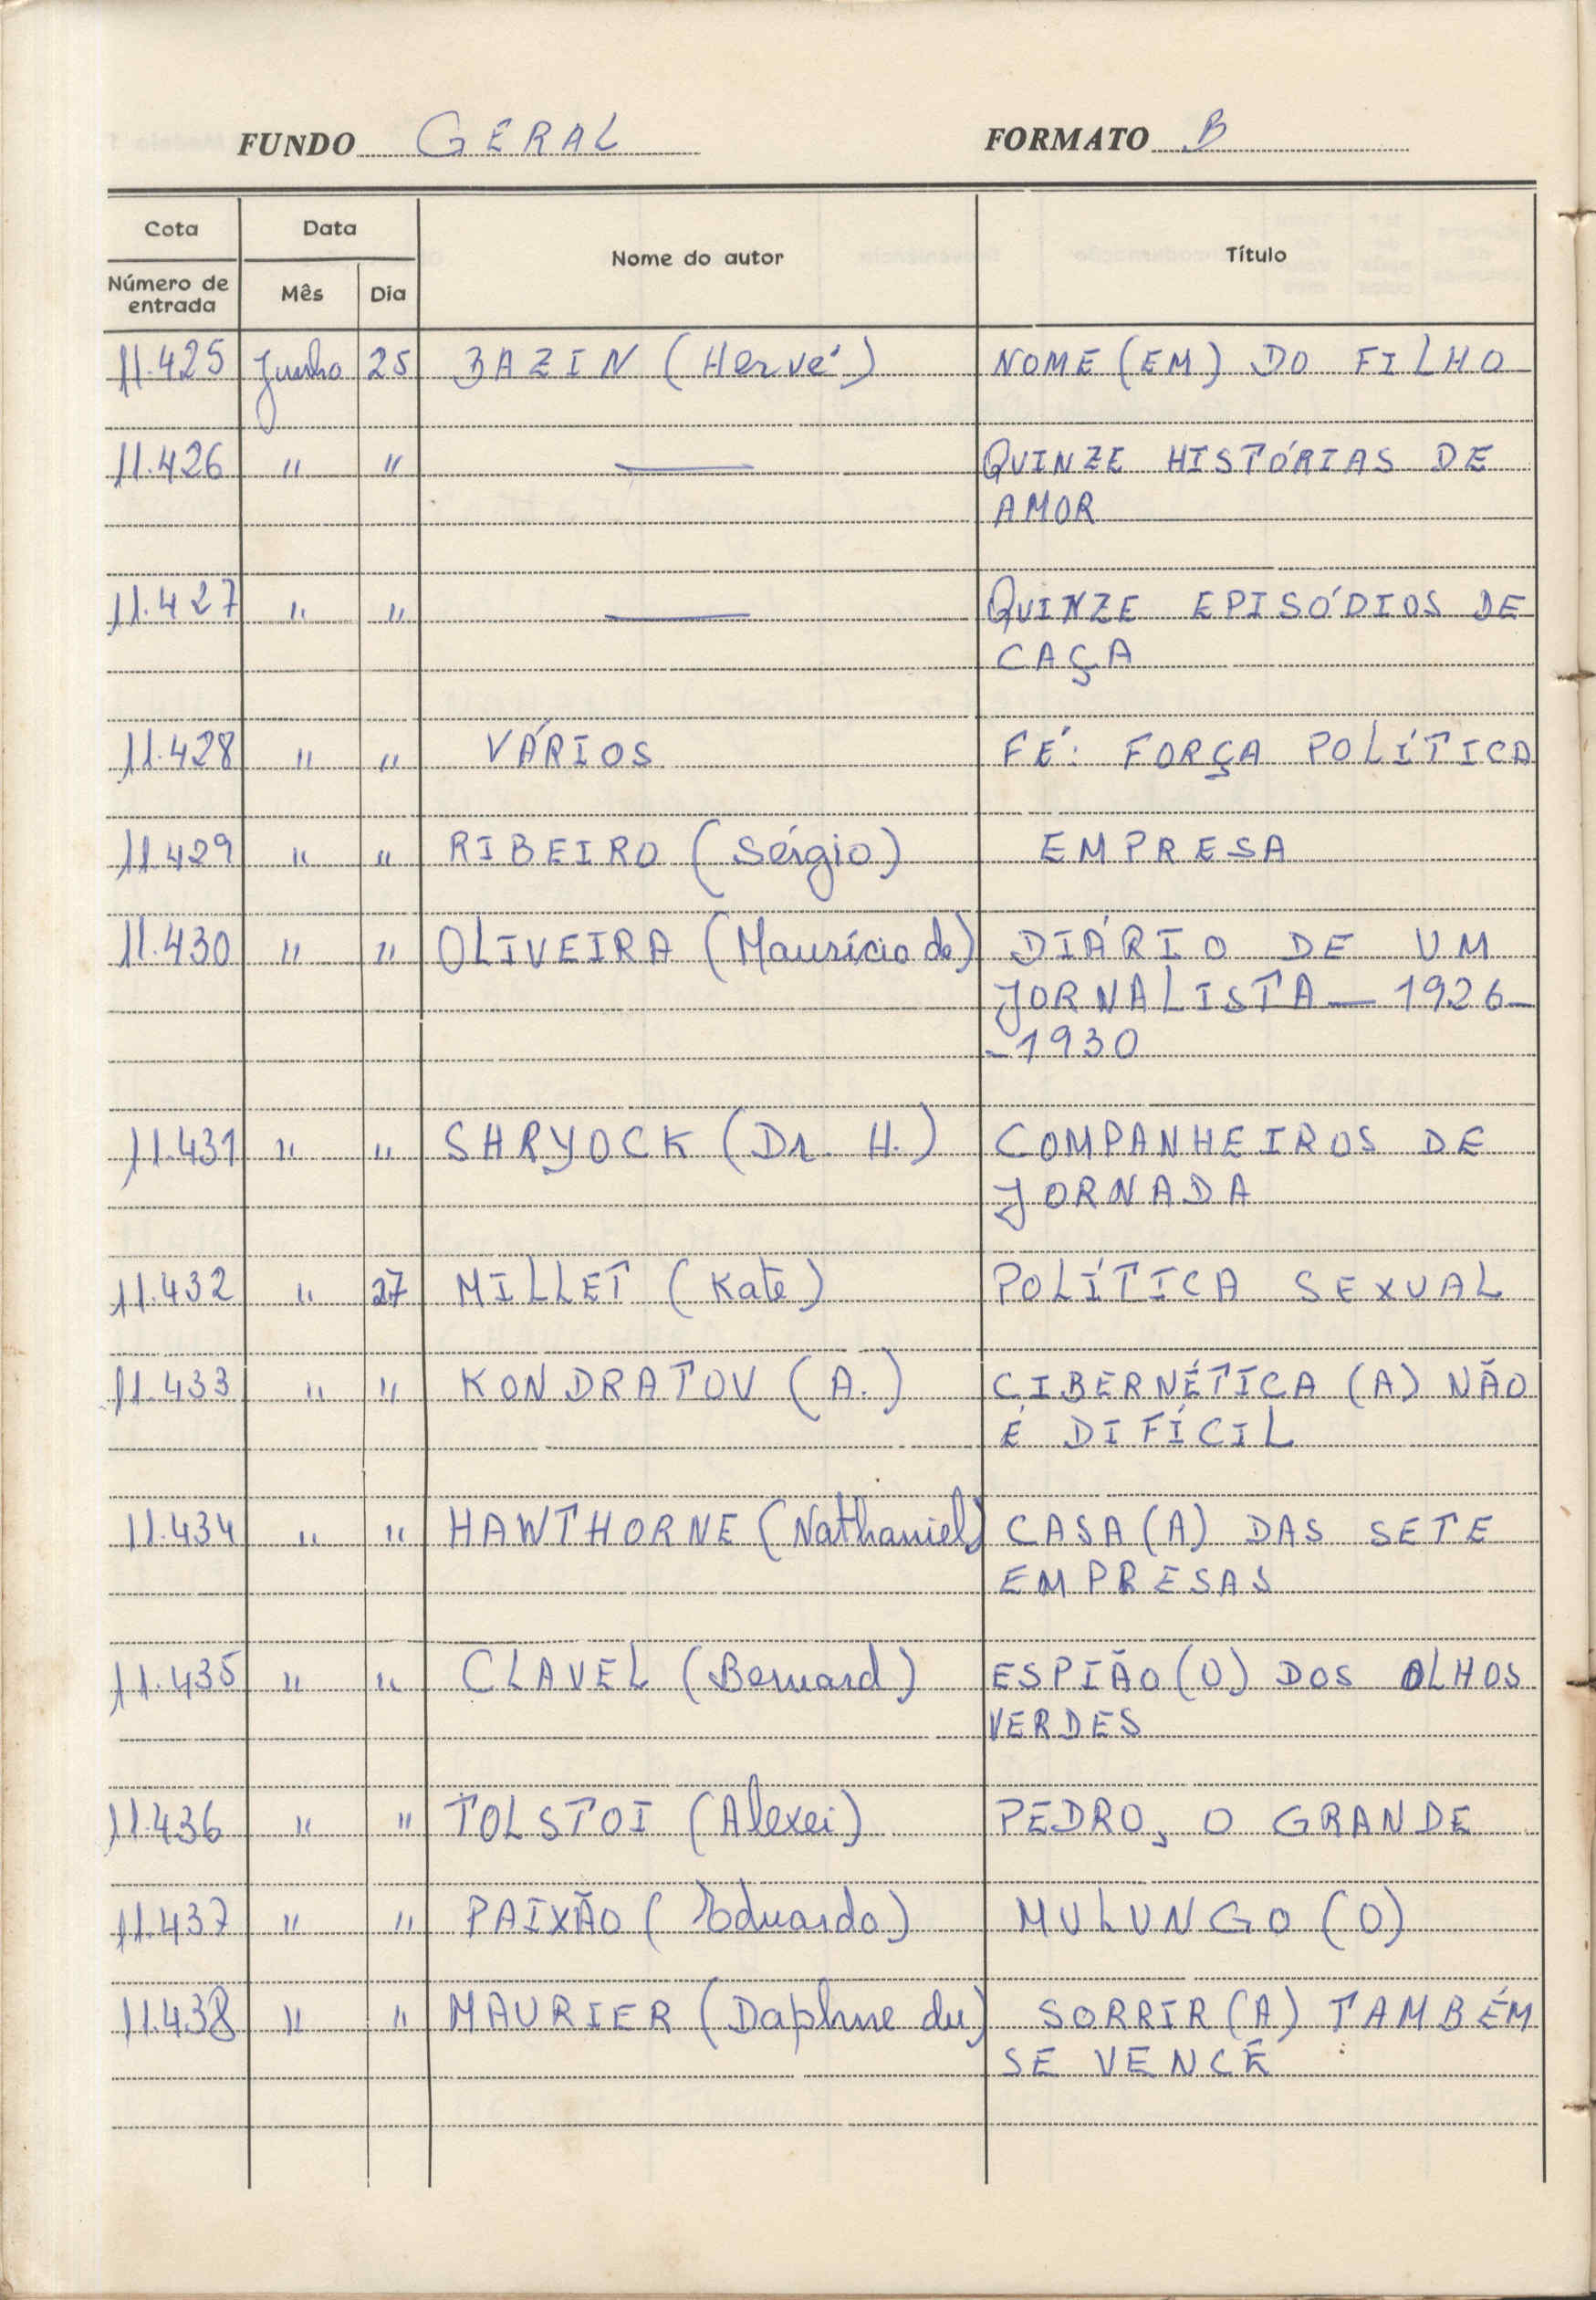 FUNDO GERAL FORMATO B
Cota Data Nome do autor Título
Número de entrada Mês Dia
11.425 Junho 25 BAZIN (Hervé) NOME (EM) DO FILHO
11.426 " " — QUINZE HISTÓRIAS DE
AMOR
11.427 " " — QUINZE EPISÓDIOS DE
CAÇA
11.428 " " VÁRIOS FÉ: FORÇA POLÍTICA
11.429 " " RIBEIRO (Sérgio) EMPRESA
11.430 " " OLIVEIRA (Maurício de) DIÁRIO DE UM
JORNALISTA — 1926-
-1930
11.431 " " SHRYOCK (Dr. H.) COMPANHEIROS DE
JORNADA
11.432 " 27 MILLET (Kate) POLÍTICA SEXUAL
11.433 " " KONDRATOV (A.) CIBERNÉTICA (A) NÃO
É DIFÍCIL
11.434 " " HAWTHORNE (Nathaniel) CASA (A) DAS SETE
EMPRESAS
11.435 " " CLAVEL (Bernard) ESPIÃO (O) DOS OLHOS
VERDES
11.436 " " TOLSTOI (Alexei) PEDRO, O GRANDE
11.437 " " PAIXÃO (Eduardo) MULUNGO (O)
11.438 " " MAURIER (Daphne du) SORRIR (A) TAMBÉM
SE VENCE